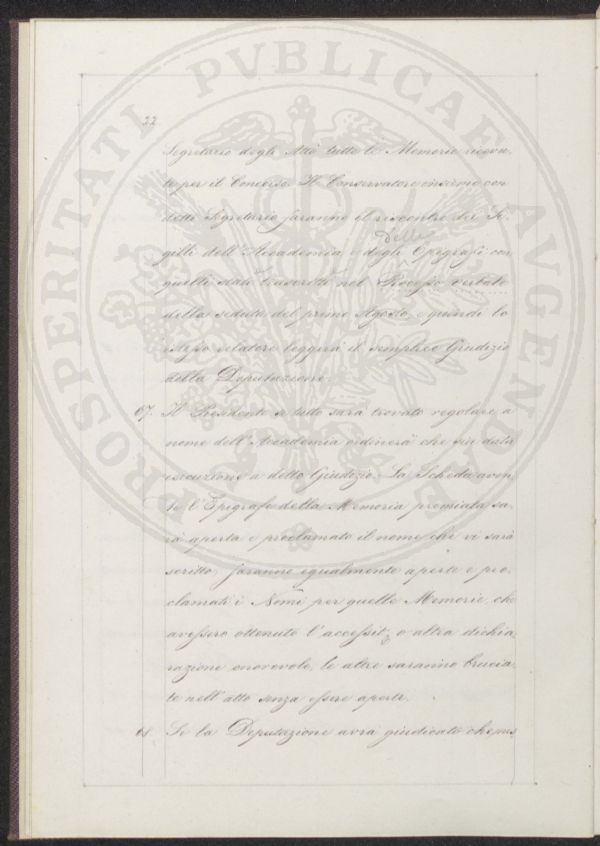 PROSPERITATI PVBLICAE AVGENDAE
22
Segretario degli Atti tutte le Memorie ricevu-
te per il Concorso. Il Conservatore insieme con
detto Segretario faranno il riscontro dei Si-
delle
gilli dell'Accademia, e degli Epigrafi con
quelli stati trascritti nel Processo verbale
della seduta del primo Agosto, e quindi lo
stesso relatore leggerà il semplice Giudizio
della Deputazione.
67. Il Presidente se tutto sarà trovato regolare, a
nome dell'Accademia ordinerà che sia data
esecuzione a detto Giudizio. La Scheda aven-
te l'Epigrafe della Memoria premiata sa-
rà aperta e proclamato il nome che vi sarà
scritto; saranno egualmente aperte e pro-
clamati i Nomi per quelle Memorie, che
avessero ottenuto l'accessit, o altra dichia-
razione onorevole, le altre saranno brucia-
te nell'atto senza essere aperte.
68. Se la Deputazione avrà giudicato che